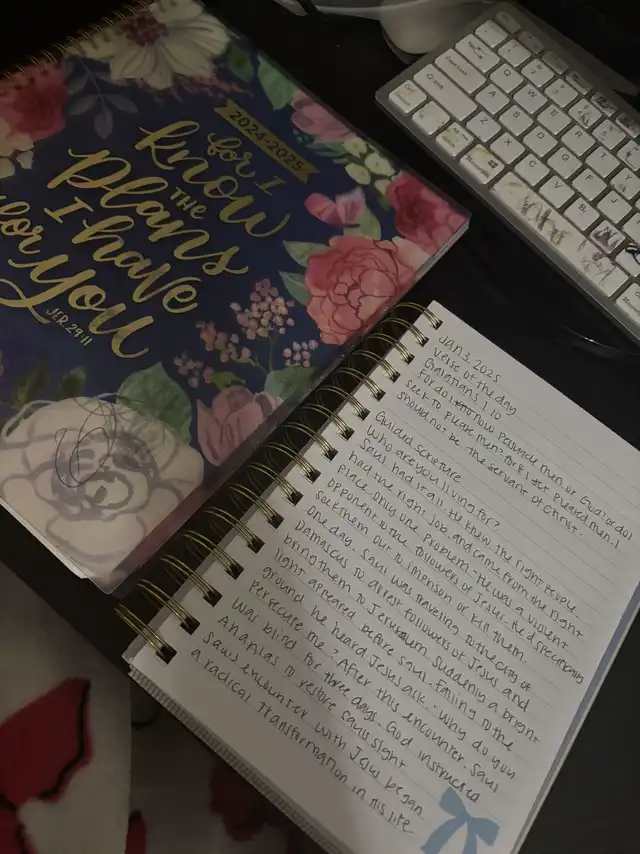 2024-2025
for I
know
THE
plans
I have
for
You
JER 29:11
JAN 3, 2025
Verse of the day
Galatians 1:10
For do I now persuade men, or God? or do I
seek to please men? for if I yet pleased men, I
should not be the servant of Christ.
Guided scripture
Who are you living for?
Saul had it all. He knew the right people
had the right job, and came from the right
place. only one problem. He was a violent
opponent to the followers of Jesus. He'd specifically
seek them out to imprison or kill them.
One day, Saul was traveling to the city of
Damascus to arrest followers of Jesus and
bring them to Jerusalem. Suddenly a bright
light appeared before Saul. Falling to the
ground he heard Jesus ask, "Why do you
persecute me." After this encounter, Saul
was blind for three days. God instructed
Ananias to restore Sauls sight
Sauls encounter with Jesus began
a radical transformation in his life.
Q
W
E
R
A
S
D
Z
X
C
V
B